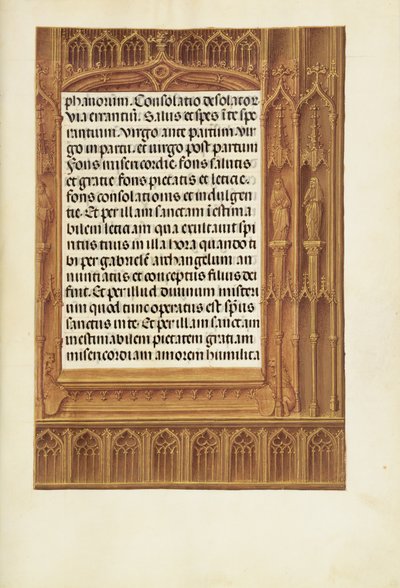 phanorum. Consolatio desolator
Via errantiu̅. Salus et spes i̅ te spe
rantium. Virgo ante partum vir
go in partu. et virgo post partum
Fons misericordie. fons salutis
et gratie. fons pietatis et leticie.
fons consolationis et indulgen
tie. Et per illam sanctam i̅estima
bilem leticiam qua exultauit spi
ritus tuus in illa hora quando ti
bi per gabrielē archangelum an
nuntiatus et conceptus filius dei
fuit. Et per illud diuinum misteri
um quod tunc operatus est sp̅us
sanctus in te. Et per illam sanctam
inestimabilem pietatem gratiam
misericordiam amorem humilita